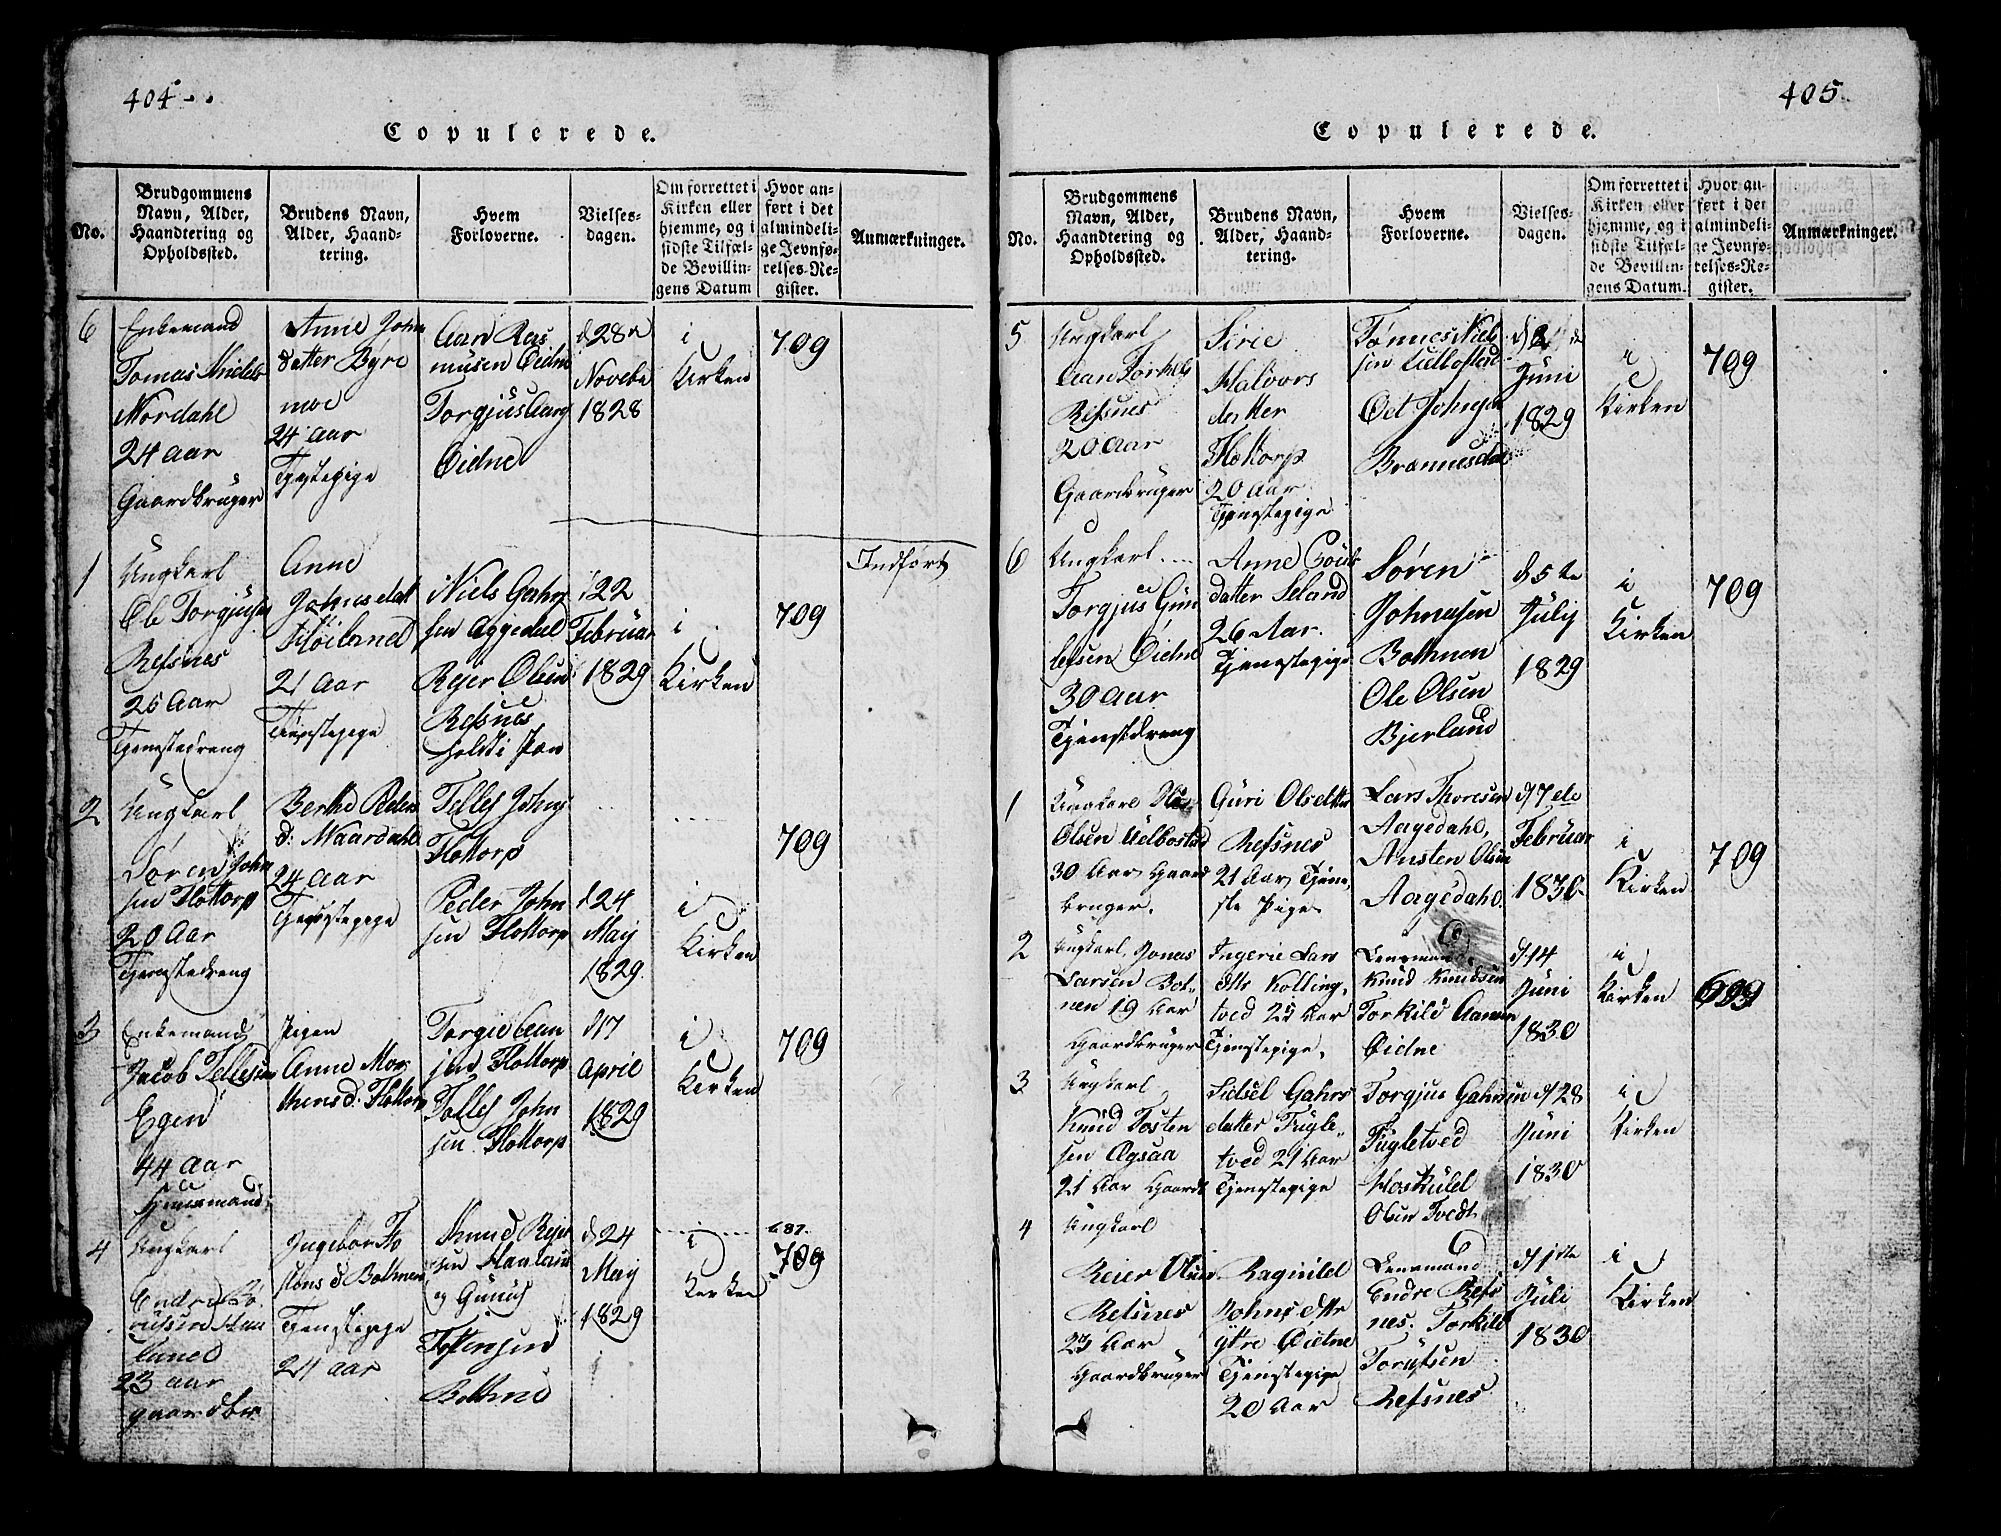 404
Copulerede.
No.
Brudgommens Navn, Alder, Haandtering og Opholdssted.
Brudens Navn, Alder, Haandtering.
Hvem Forloverne.
Vielsesdagen.
Om forrettet i Kirken eller hjemme, og i sidste Tilfælde Bevillingens Datum
Hvor anført i det almindelige Jevnførelses-Register.
Anmærkninger.
6
Enkemand
Tomas Niels
Nordahl
24 Aar
Gaardbruger
Anne John
datter Byre
moe
24 Aar
Tjenstepige
Aan Ras
musen Eidne
Torgjus Aang
Eidne
d 28de
Novebr
1828
i
Kirken
709
Indført
1
Ungkarl
Ole Torgjusen
Refsnes
25 Aar
Tjenstedreng
Anne
Johnsdatt
Høiland
21 Aar
Tjenstepige
Niels Gahr
sen Aggedal
Rejer Olsen
Refsnes
d 22
Februar
1829
i
Kirken
709
2
Ungkarl
Søren John
sen Flottorp
20 Aar
Tjenstedreng
Berthe Peders
d: Naardahl
24 Aar
Tjenstepige
Tellef Johns
Flottorp
Peder John
sen Flottorp
d 24
Maij
1829
i
Kirken
709
3
Enkemand
Jacob Tellefsen
Egen
44 Aar
Huusmand
Pigen
Anne Mor
thensd: Flottorp
Torgie Aan
sen Flottorp
Tellef John
sen Flottorp
d 17
April
1829
i
Kirken
709
4
Ungkarl
Endre
Haa
land
23 aar
gaardbr.
Ingebor To
stens d Bothnen
Tjenstepige
24 aar
Knud Rejer
sen Haaland
og Gunuf
Tostensen
Bothne
d 24
Maij
1829
i
Kirken
687.
709
405
Copulerede.
No.
Brudgommens Navn, Alder, Haandtering og Opholdssted.
Brudens Navn, Alder, Haandtering.
Hvem Forloverne.
Vielsesdagen.
Om forrettet i Kirken eller hjemme, og i sidste Tilfælde Bevillingens Datum.
Hvor anført i det almindelige Jevnførelses-Register.
Anmærkninger.
5
Ungkarl
Aan Torkels
Refsnes
20 Aar
Gaardbruger
Sirie
Halvors
datter
Flottorp
20 Aar
Tjenstepige
Tønnes Niel
sen
Oel Johnsen
Bronnesdal
Juni
1829
i
Kirken
709
6
Ungkarl
Torgjus Gun
lefsen Eidne
30 Aar
Tjenstdreng
Anne
datter Seland
26 Aar.
Tjenstepige
Søren
Johnsen
Bothnen
Ole Olsen
Bjerland
d 5te
Julij
1829
i
Kirken
709
1
Ungkarl
Olsen Udbostad
30 Aar Gaard
bruger.
Guri Olsdtter
Refsnes
21 Aar Tjene
ste Pige
Lars Thoresen
Aagedahl,
Ansten Olsen
Aagedahl.
d 7de
Februar
1830
i
Kirken
709
2
Ungkarl, Jonas
Larsen Bot
nen 19 Aar
Gaardbruger
Ingerie Lars
dtr Kolling
tved 25 Aar
Tjenstepige,
Lensmand
Knud Knudsen
Torkild Aansen
Eidne
d 14
Juni
1830
i
Kirken
699
3
Ungkarl
Knud Tosten
sen Øgsaa
25 Aar Gaardb
Sidsel Gahrs
datter Fugle
tved 21 Aar
Tjenstepige
Torgjus Gahrsen
Fugletved
Hoskuld
Olsen Tvedt
d 28
Juni
1830
i
Kirken
4
Ungkarl
Reier Olsen
Refsnes
23 Aar
Gaardbruger
Ragnild
Johns dttr
ytre Eidtne
Tjenstepige
20 Aar
Lensmand
Endre Refs
nes. Torkild
Torgusen
Refsnes
d 1ste
Juli
1830
i
Kirken